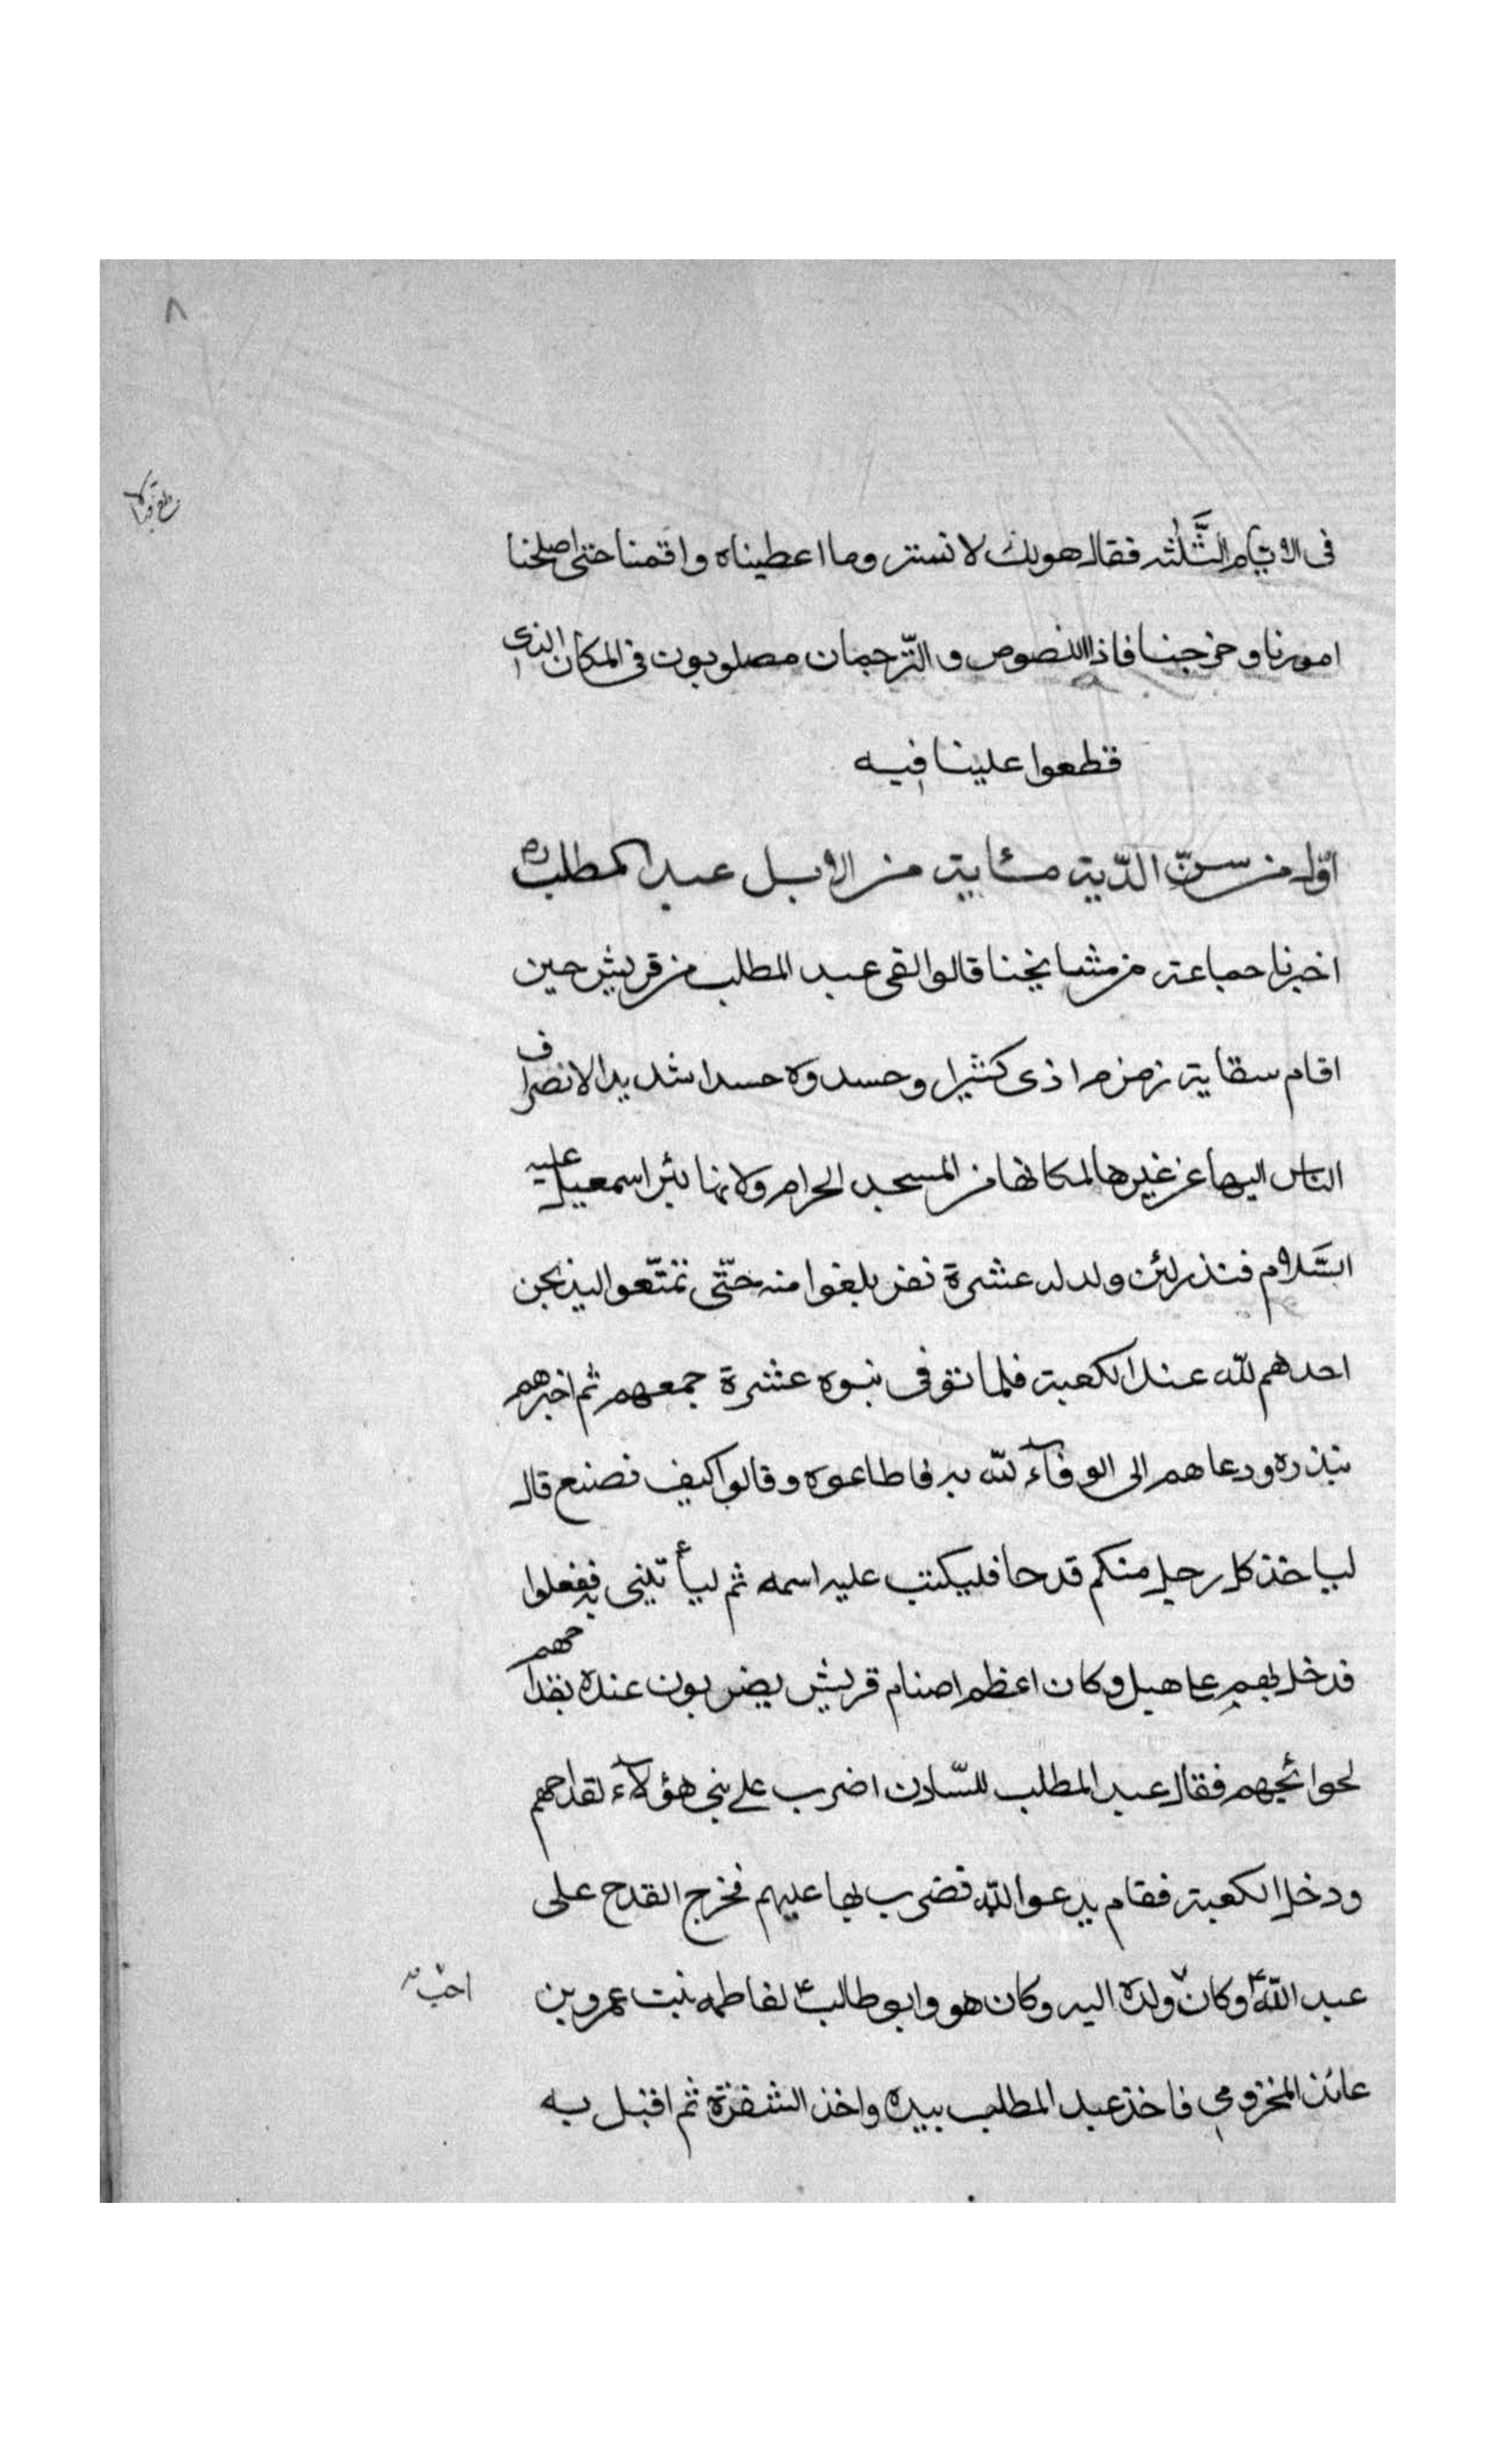 ٨
فى الايام الثلثه فقال هولك لانستر وما اعطيناه واقمنا حتى اصلحنا
امورنا وخرجنا فاذا اللصوص والترجمان مصلوبون فى المكان الذى
قطعوا علينا فيه
اوّل من سنّ الدّية مئاية من الابل عبد المطلب ره
اخبرنا جماعة من مشايخنا قالوا لقى عبد المطلب من قريش حين
اقام سقاية زمزم اذى كثيرا وحسدوه حسدا شديدا لانصراف
الناس اليها عن غيرها لمكانها من المسجد الحرام ولانها بئر اسمعيل عليه
السَّلام فنذر لئن ولد له عشرة نفر بلغوا منه حتّى تمتّعوا ليذبحن
احدهم للّه عند الكعبة فلما توفى بنوه عشرة جمعهم ثم اخبرهم
بنذره ودعاهم الى الوفآء للّه به فاطاعوه وقالوا كيف نصنع قال
لياخذ كل رجل منكم قدحا فليكتب عليه اسمه ثم ليأتينى به ففعلوا
فدخل بهم على هبل وكان اعظم اصنام قريش يضربون عنده بقداحهم
لحوائجهم فقال عبد المطلب للسّادن اضرب على بنى هؤلآء لقداحهم
ودخل الكعبة فقام يدعوا اللّه فضرب بها عليهم فخرج القدح على
عبد اللّه ع وكان ولده اليه وكان هو وابو طالب ع لفاطمه بنت عمرو بن
احبّ
عائذ المخزومى فاخذ عبد المطلب بيده واخذ الشفرة ثم اقبل به